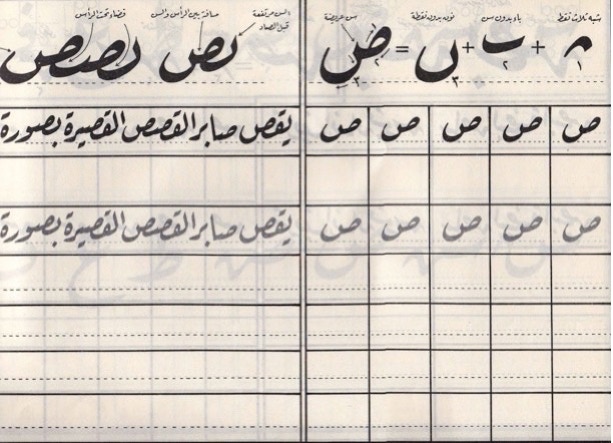 شبه ثلاث نقط باء بدون سن نون بدون نقطة سن عريضة
١ + ٢ + ٣ = ص ١ ٢ ٣
السن مرتفعة قبل الصاد مسافة بين الرأس والسن فضاء تحت الرأس
ص ص ص ص ص
يقص صابر القصص القصيرة بصورة
ص ص ص ص ص
يقص صابر القصص القصيرة بصورة